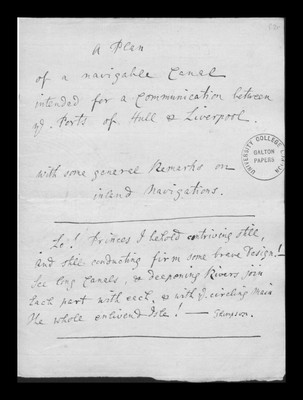 A Plan
of a navigable Canal
intended for a Communication between
yᵉ. Ports of Hull & Liverpool.
with some general Remarks on
inland Navigations.
Lo! Princes I behold contriving still,
And still conducting firm some brave Design! —
See long Canals, & deepening Rivers join
Each part with each, & with yᵉ circling Main
The whole enlivend Isle! —
UNIVERSITY COLLEGE
GALTON
PAPERS